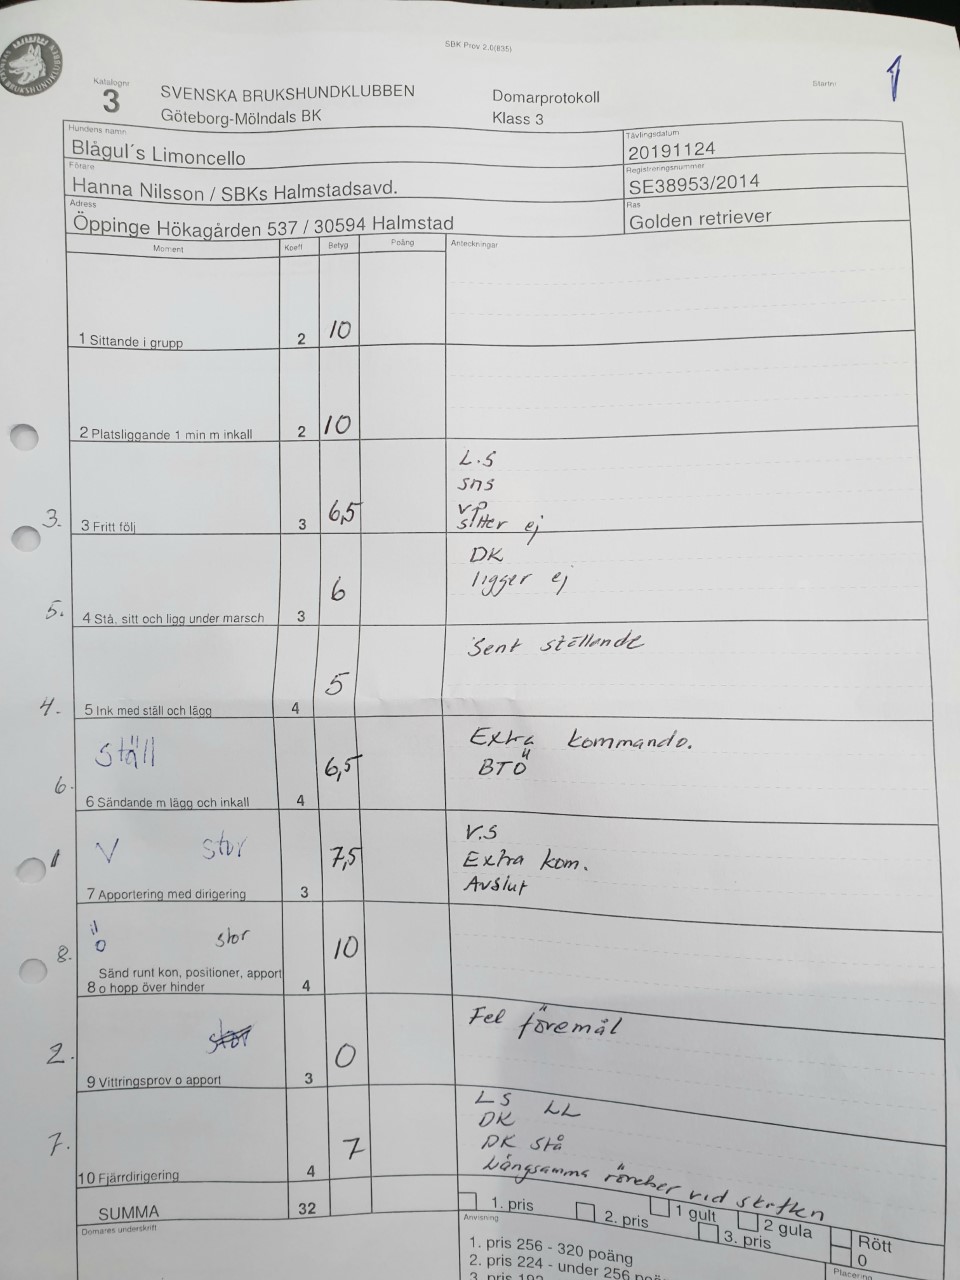 SBK Prov 2.0(835)
Katalognr
3
SVENSKA BRUKSHUNDKLUBBEN
Göteborg-Mölndals BK
Domarprotokoll
Klass 3
Startnr
1
Hundens namn
Blågul´s Limoncello
Tävlingsdatum
20191124
Förare
Hanna Nilsson / SBKs Halmstadsavd.
Registreringsnummer
SE38953/2014
Adress
Öppinge Hökagården 537 / 30594 Halmstad
Ras
Golden retriever
Moment Koeff Betyg Poäng Anteckningar
1 Sittande i grupp 2 10
2 Platsliggande 1 min m inkall 2 10
L.S
sns
vp
sitter ej
3. 3 Fritt följ 3 6,5
DK
ligger ej
5. 4 Stå, sitt och ligg under marsch 3 6
Sent ställande
4. 5 Ink med ställ och lägg 4 5
Ställ
Extra kommando.
BTÖ
6. 6 Sändande m lägg och inkall 4 6,5
V stor
V.S
Extra kom.
Avslut
1 7 Apportering med dirigering 3 7,5
Ö stor
8. Sänd runt kon, positioner, apport
8 o hopp över hinder 4 10
stor
Fel föremål
2. 9 Vittringsprov o apport 3 0
LS LL
DK
DK stå
Långsamma rörelser vid skiften
7. 10 Fjärrdirigering 4 7
SUMMA 32
1. pris 2. pris 1 gult 3. pris 2 gula Rött
0
Domares underskrift
Anvisning
1. pris 256 - 320 poäng
2. pris 224 - under 256 poäng
3. pris 192
Placering